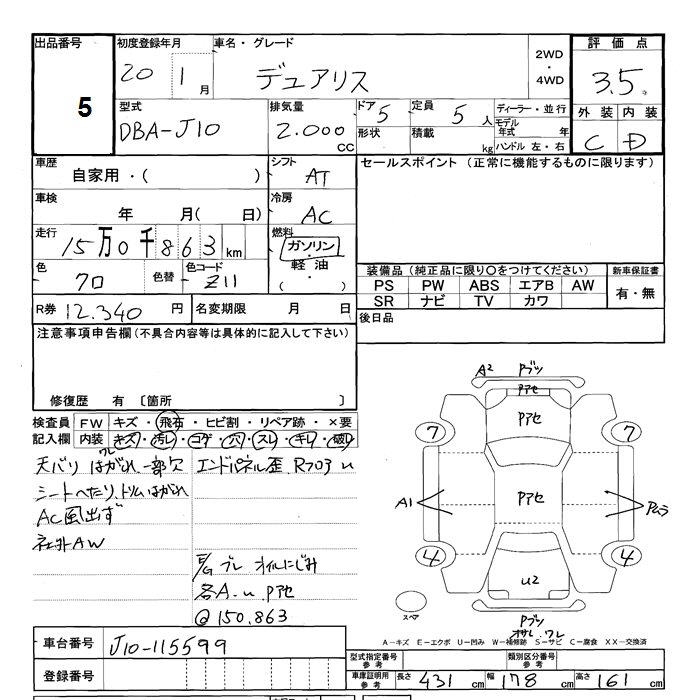 出品番号
5
初度登録年月
20 1月
車名・グレード
デュアリス
2WD
・
4WD
評価点
3.5
外装 内装
C D
型式
DBA-J10
排気量
2.000
CC
ドア 5
形状
定員 5 人
積載 kg
ディーラー・並行
モデル年式 年
ハンドル 左・右
車歴
自家用・( )
シフト
AT
セールスポイント (正常に機能するものに限ります)
車検
年 月( 日)
冷房
AC
走行
15万0千863km
燃料
ガソリン
・
軽油
( )
色
70
色替
色コード
Z11
装備品(純正品に限り○をつけてください)
PS PW ABS エアB AW
SR ナビ TV カワ
新車保証書
有・無
R券 12.340 円
名変期限 月 日
後日品
注意事項申告欄(不具合内容等は具体的に記入して下さい)
修復歴 有 〔箇所 〕
検査員記入欄
FW キズ・飛石・ヒビ割・リペア跡・×要
内装 キズ・汚レ・コゲ・穴・スレ・キレ・破レ
天バリ はがれ 一部欠
ワレ
エンドパネル歪 R703 u
シートへたり、トリムはがれ
AC風出ず
社外AW
ブレ オイルにじみ
各A.u.Pアセ
@150.863
A2 Pブツ
Pアセ
Pアセ
7 7
A1
Pアセ
Pムラ
4 4
u2
スペア
Pブツ
オサレ.ワレ
A-キズ E-エクボ U-凹み W-補修跡 S-サビ C-腐食 XX-交換済
車台番号
J10-115599
登録番号
型式指定番号
参考
類別区分番号
参考
車庫証明用
参考
長さ 431 cm 幅 178 cm 高さ 161 cm